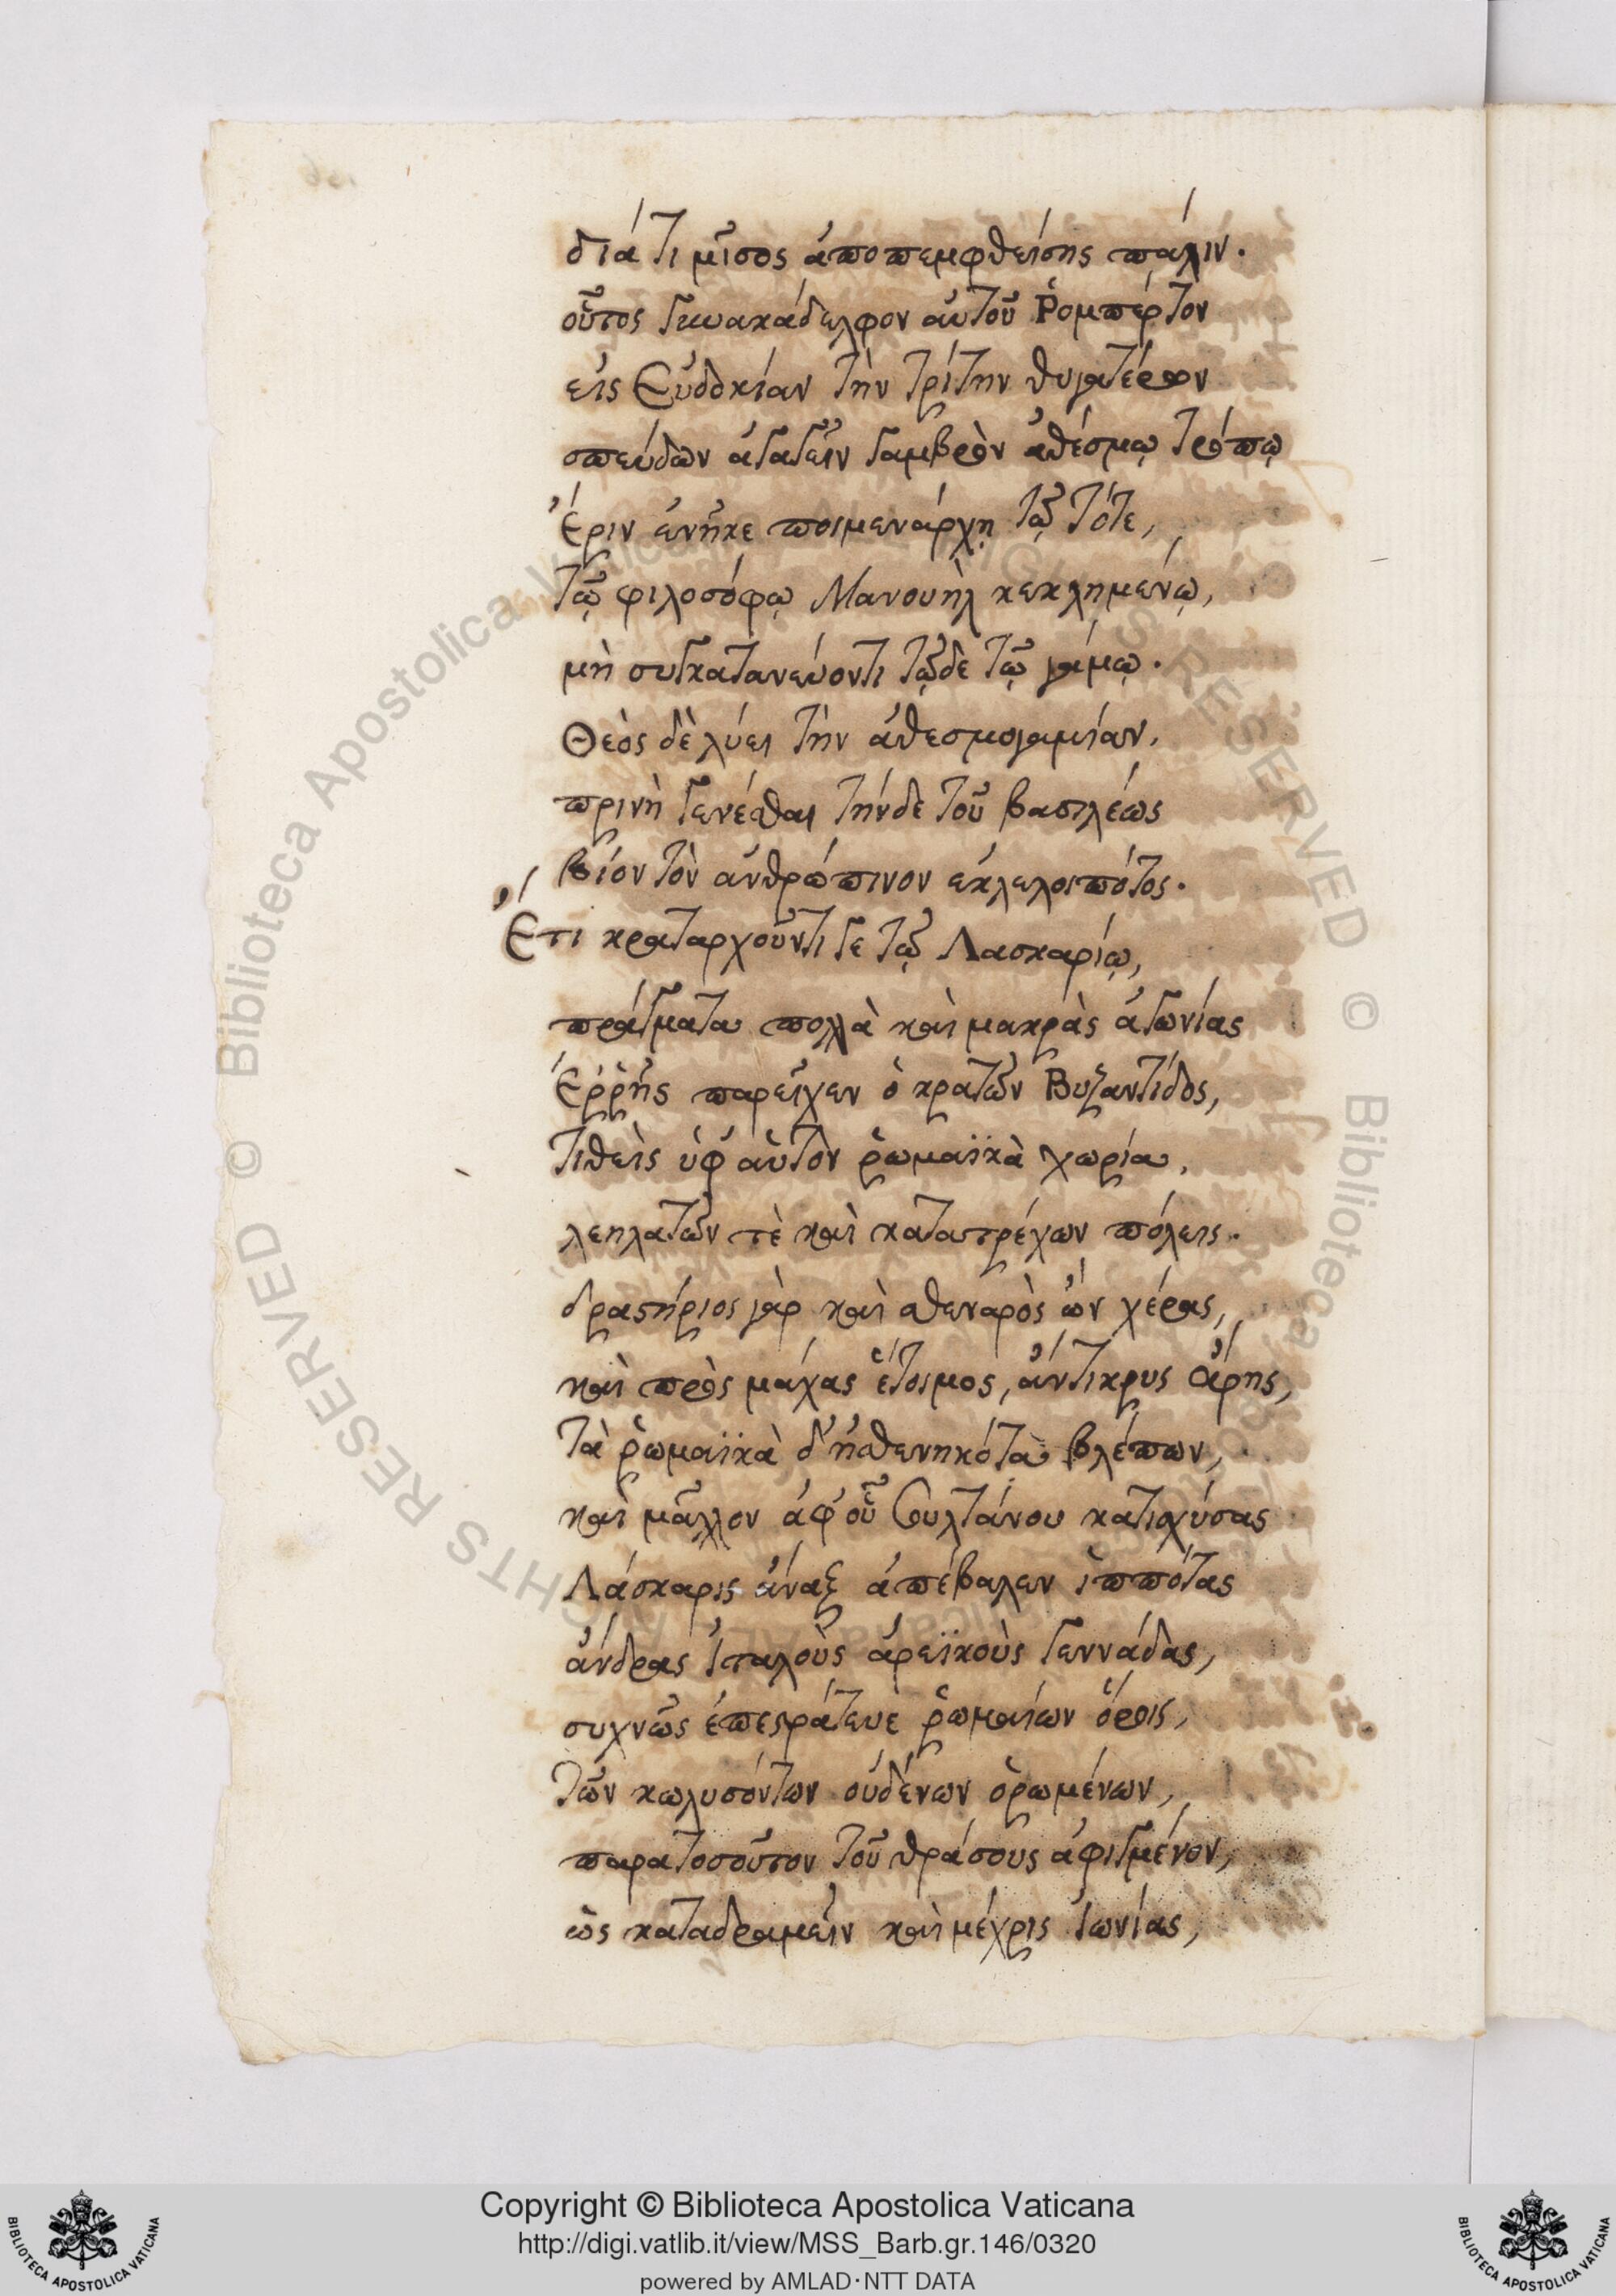 διάτι μῖσος ἀποπεμφθείσης πάλιν.
οὗτος γυναικάδελφον αὐτοῦ Ῥομπέρτον
εἰς Εὐδοκίαν τὴν τρίτην θυγατέραν
σπεύδων ἀγαγεῖν γαμβρὸν ἀθέσμῳ τρόπῳ
Ἔριν ἐνῆκε ποιμενάρχῃ τῷ τότε,
τῷ φιλοσόφῳ Μανουὴλ κεκλημένῳ,
μὴ συγκατανεύοντι τῷδε τῷ γάμῳ.
Θεὸς δὲ λύει τὴν ἀθεσμογαμίαν,
πρινὴ γενέσθαι τήνδε τοῦ βασιλέως
βίον τὸν ἀνθρώπινον ἐκλελοιπότος.
Ἔτι κραταρχοῦντι γε τῷ Λασκαρίῳ,
πράγματα πολλὰ καὶ μακρὰς ἀγωνίας
Ἐῤῥῆς παρεῖχεν ὁ κρατῶν Βυζαντίδος,
τιθεὶς ὑφ αὑτὸν ῥωμαϊκὰ χωρία,
λεηλατῶν τὲ καὶ κατατρέχων πόλεις.
δραστήριος γὰρ καὶ σθεναρὸς ὢν χέρας,
καὶ πρὸς μάχας ἕτοιμος, ἄντικρυς Ἄρης,
τὰ ῥωμαϊκὰ δ' ἠσθενηκότα βλέπων,
καὶ μᾶλλον ἀφ' οὗ Σουλτάνου κατισχύσας
Λάσκαρις ἄναξ ἀπέβαλεν ἱππότας
ἄνδρας ἰταλοὺς ἀρεϊκοὺς γεννάδας,
συχνῶς ἐπεστράτευε ῥωμαίων ὅροις,
τῶν κωλυσόντων οὐδένων ὁρωμένων,
παρατοσοῦτον τοῦ θράσους ἀφιγμένον,
ὡς καταδραμεῖν καὶ μέχρις Ἰωνίας,
Copyright © Biblioteca Apostolica Vaticana
http://digi.vatlib.it/view/MSS_Barb.gr.146/0320
powered by AMLAD·NTT DATA